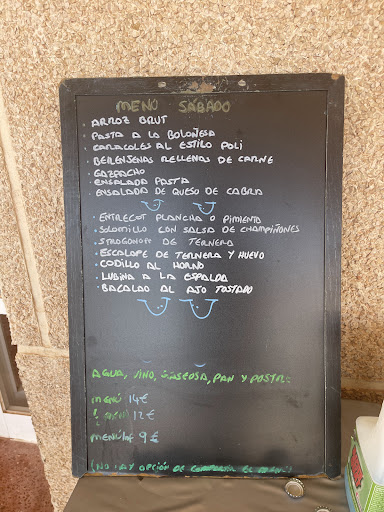 MENÚ SÁBADO
· ARROZ BRUT
· PASTA A LA BOLOÑESA
· CARACOLES AL ESTILO POLI
· BERENJENAS RELLENAS DE CARNE
· GAZPACHO
· ENSALADA PASTA
· ENSALADA DE QUESO DE CABRA
· ENTRECOT PLANCHA O PIMIENTA
· SOLOMILLO CON SALSA DE CHAMPIÑONES
· STROGONOFF DE TERNERA
· ESCALOPE DE TERNERA Y HUEVO
· CODILLO AL HORNO
· LUBINA A LA ESPALDA
· BACALAO AL AJO TOSTADO
AGUA, VINO, GASEOSA, PAN Y POSTRE
MENÚ 14€
12€
MENÚ 9€
(NO HAY OPCIÓN DE COMPARTIR EL MENÚ)